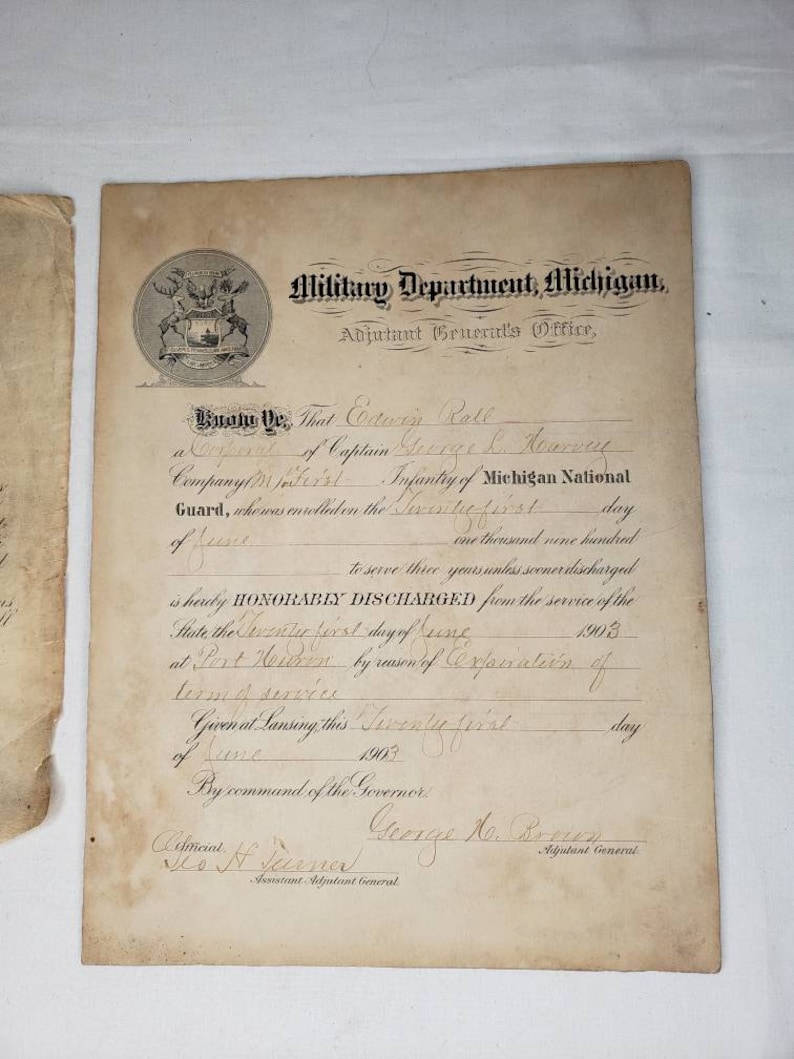 Military Department, Michigan,
Adjutant General's Office,
Know Ye, That Edwin Rall
a Corporal of Captain George L. Harvey
Company M First Infantry of Michigan National
Guard, who was enrolled on the Twenty first day
of June one thousand nine hundred
to serve three years unless sooner discharged
is hereby HONORABLY DISCHARGED from the service of the
State, the Twenty first day of June 1903
at Port Huron by reason of Expiration of
term of service
Given at Lansing, this Twenty first day
of June 1903
By command of the Governor.
George H. Brown
Adjutant General.
Official.
Geo H Turner
Assistant Adjutant General.